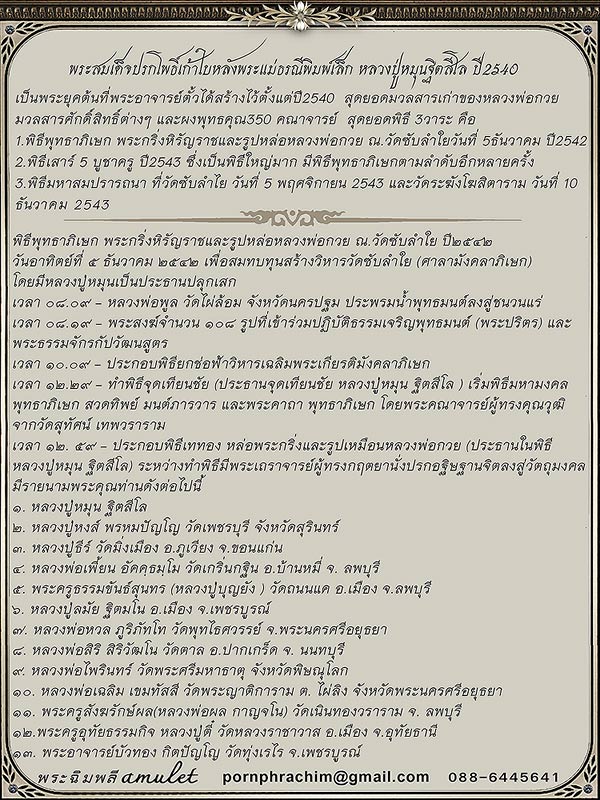 พระสมเด็จปรกโพธิ์เก้าใบหลังพระแม่ธรณีพิมพ์เล็ก หลวงปู่หมุนฐิตสีโล ปี2540
เป็นพระยุคต้นที่พระอาจารย์ตั้วได้สร้างไว้ตั้งแต่ปี2540 สุดยอดมวลสารเก่าของหลวงพ่อกวย
มวลสารศักดิ์สิทธิ์ต่างๆ และผงพุทธคุณ350 คณาจารย์ สุดยอดพิธี 3วาระ คือ
1.พิธีพุทธาภิเษก พระกริ่งหิรัญราชและรูปหล่อหลวงพ่อกวย ณ.วัดซับลำใยวันที่ 5ธันวาคม ปี2542
2.พิธีเสาร์ 5 บูชาครู ปี2543 ซึ่งเป็นพิธีใหญ่มาก มีพิธีพุทธาภิเษกตามลำดับอีกหลายครั้ง
3.พิธีมหาสมปรารถนา ที่วัดซับลำใย วันที่ 5 พฤศจิกายน 2543 และวัดระฆังโฆสิตาราม วันที่ 10
ธันวาคม 2543
พิธีพุทธาภิเษก พระกริ่งหิรัญราชและรูปหล่อหลวงพ่อกวย ณ.วัดซับลำใย ปี๒๕๔๒
วันอาทิตย์ที่ ๕ ธันวาคม ๒๕๔๒ เพื่อสมทบทุนสร้างวิหารวัดซับลำใย (ศาลามังคลาภิเษก)
โดยมีหลวงปู่หมุนเป็นประธานปลุกเสก
เวลา ๐๘.๐๙ – หลวงพ่อพูล วัดไผ่ล้อม จังหวัดนครปฐม ประพรมน้ำพุทธมนต์ลงสู่ชนวนแร่
เวลา ๐๘.๑๙ – พระสงฆ์จำนวน ๑๐๘ รูปที่เข้าร่วมปฏิบัติธรรมเจริญพุทธมนต์ (พระปริตร) และ
พระธรรมจักรกัปวัฒนสูตร
เวลา ๑๐.๐๙ – ประกอบพิธียกช่อฟ้าวิหารเฉลิมพระเกียรติมังคลาภิเษก
เวลา ๑๒.๒๙ – ทำพิธีจุดเทียนชัย (ประธานจุดเทียนชัย หลวงปู่หมุน ฐิตสีโล ) เริ่มพิธีมหามงคล
พุทธาภิเษก สวดทิพย์ มนต์ภารวาร และพระคาถา พุทธาภิเษก โดยพระคณาจารย์ผู้ทรงคุณวุฒิ
จากวัดสุทัศน์ เทพวราราม
เวลา ๑๒. ๕๙ – ประกอบพิธีเททอง หล่อพระกริ่งและรูปเหมือนหลวงพ่อกวย (ประธานในพิธี
หลวงปู่หมุน ฐิตสีโล) ระหว่างทำพิธีมีพระเถราจารย์ผู้ทรงกฤตยานั่งปรกอธิษฐานจิตลงสู่วัตถุมงคล
มีรายนามพระคุณท่านดังต่อไปนี้
๑. หลวงปู่หมุน ฐิตสีโล
๒. หลวงปู่หงส์ พรหมปัญโญ วัดเพชรบุรี จังหวัดสุรินทร์
๓. หลวงปู่ธีร์ วัดมิ่งเมือง อ.ภูเวียง จ.ขอนแก่น
๔. หลวงพ่อเพี้ยน อัคคธมฺโม วัดเกริ่นกฐิน อ.บ้านหมี่ จ. ลพบุรี
๕. พระครูธรรมขันธ์สุนทร (หลวงปู่บุญยัง ) วัดถนนแค อ.เมือง จ.ลพบุรี
๖. หลวงปู่ลมัย ฐิตมโน อ.เมือง จ.เพชรบูรณ์
๗. หลวงพ่อหวล ภูริภัทโท วัดพุทไธศวรรย์ จ.พระนครศรีอยุธยา
๘. หลวงพ่อสิริ สิริวัฒโน วัดตาล อ.ปากเกร็ด จ. นนทบุรี
๙. หลวงพ่อไพรินทร์ วัดพระศรีมหาธาตุ จังหวัดพิษณุโลก
๑๐. หลวงพ่อเฉลิม เขมทัสสี วัดพระญาติการาม ต. ไผ่ลิง จังหวัดพระนครศรีอยุธยา
๑๑. พระครูสังฆรักษ์ผล(หลวงพ่อผล กาญจโน) วัดเนินทองวราราม จ. ลพบุรี
๑๒.พระครูอุทัยธรรมกิจ หลวงปู่ตี๋ วัดหลวงราชาวาส อ.เมือง จ.อุทัยธานี
๑๓. พระอาจารย์บัวทอง กิตปัญโญ วัดทุ่งเรไร จ.เพชรบูรณ์
พระฉิมพลี amulet pornphrachim@gmail.com 088-6445641